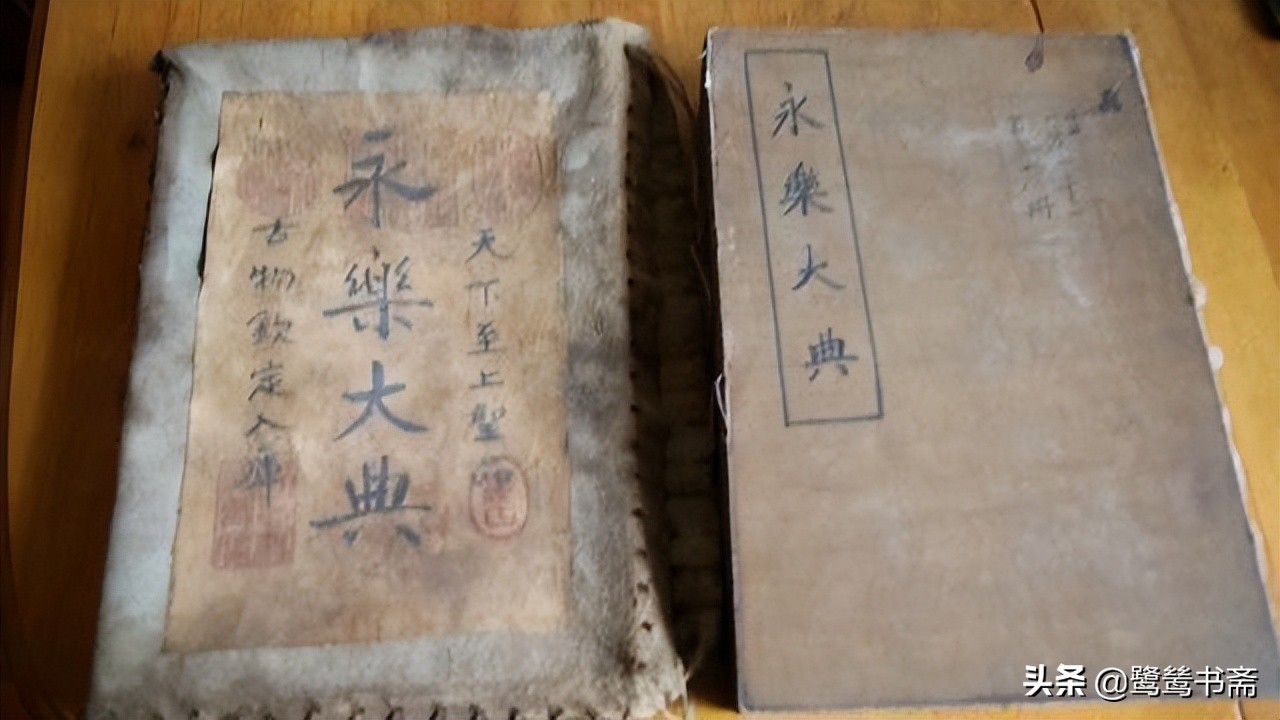 天下至上聖
永樂大典
古物欽定入庫
永樂大典
冊
头条 @鹭鸶书斋